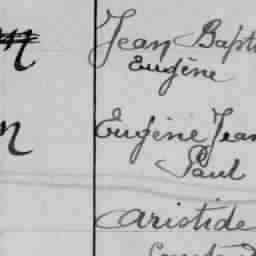 m Jean Bapti
Eugène
n Eugène Jean
Paul
Aristide